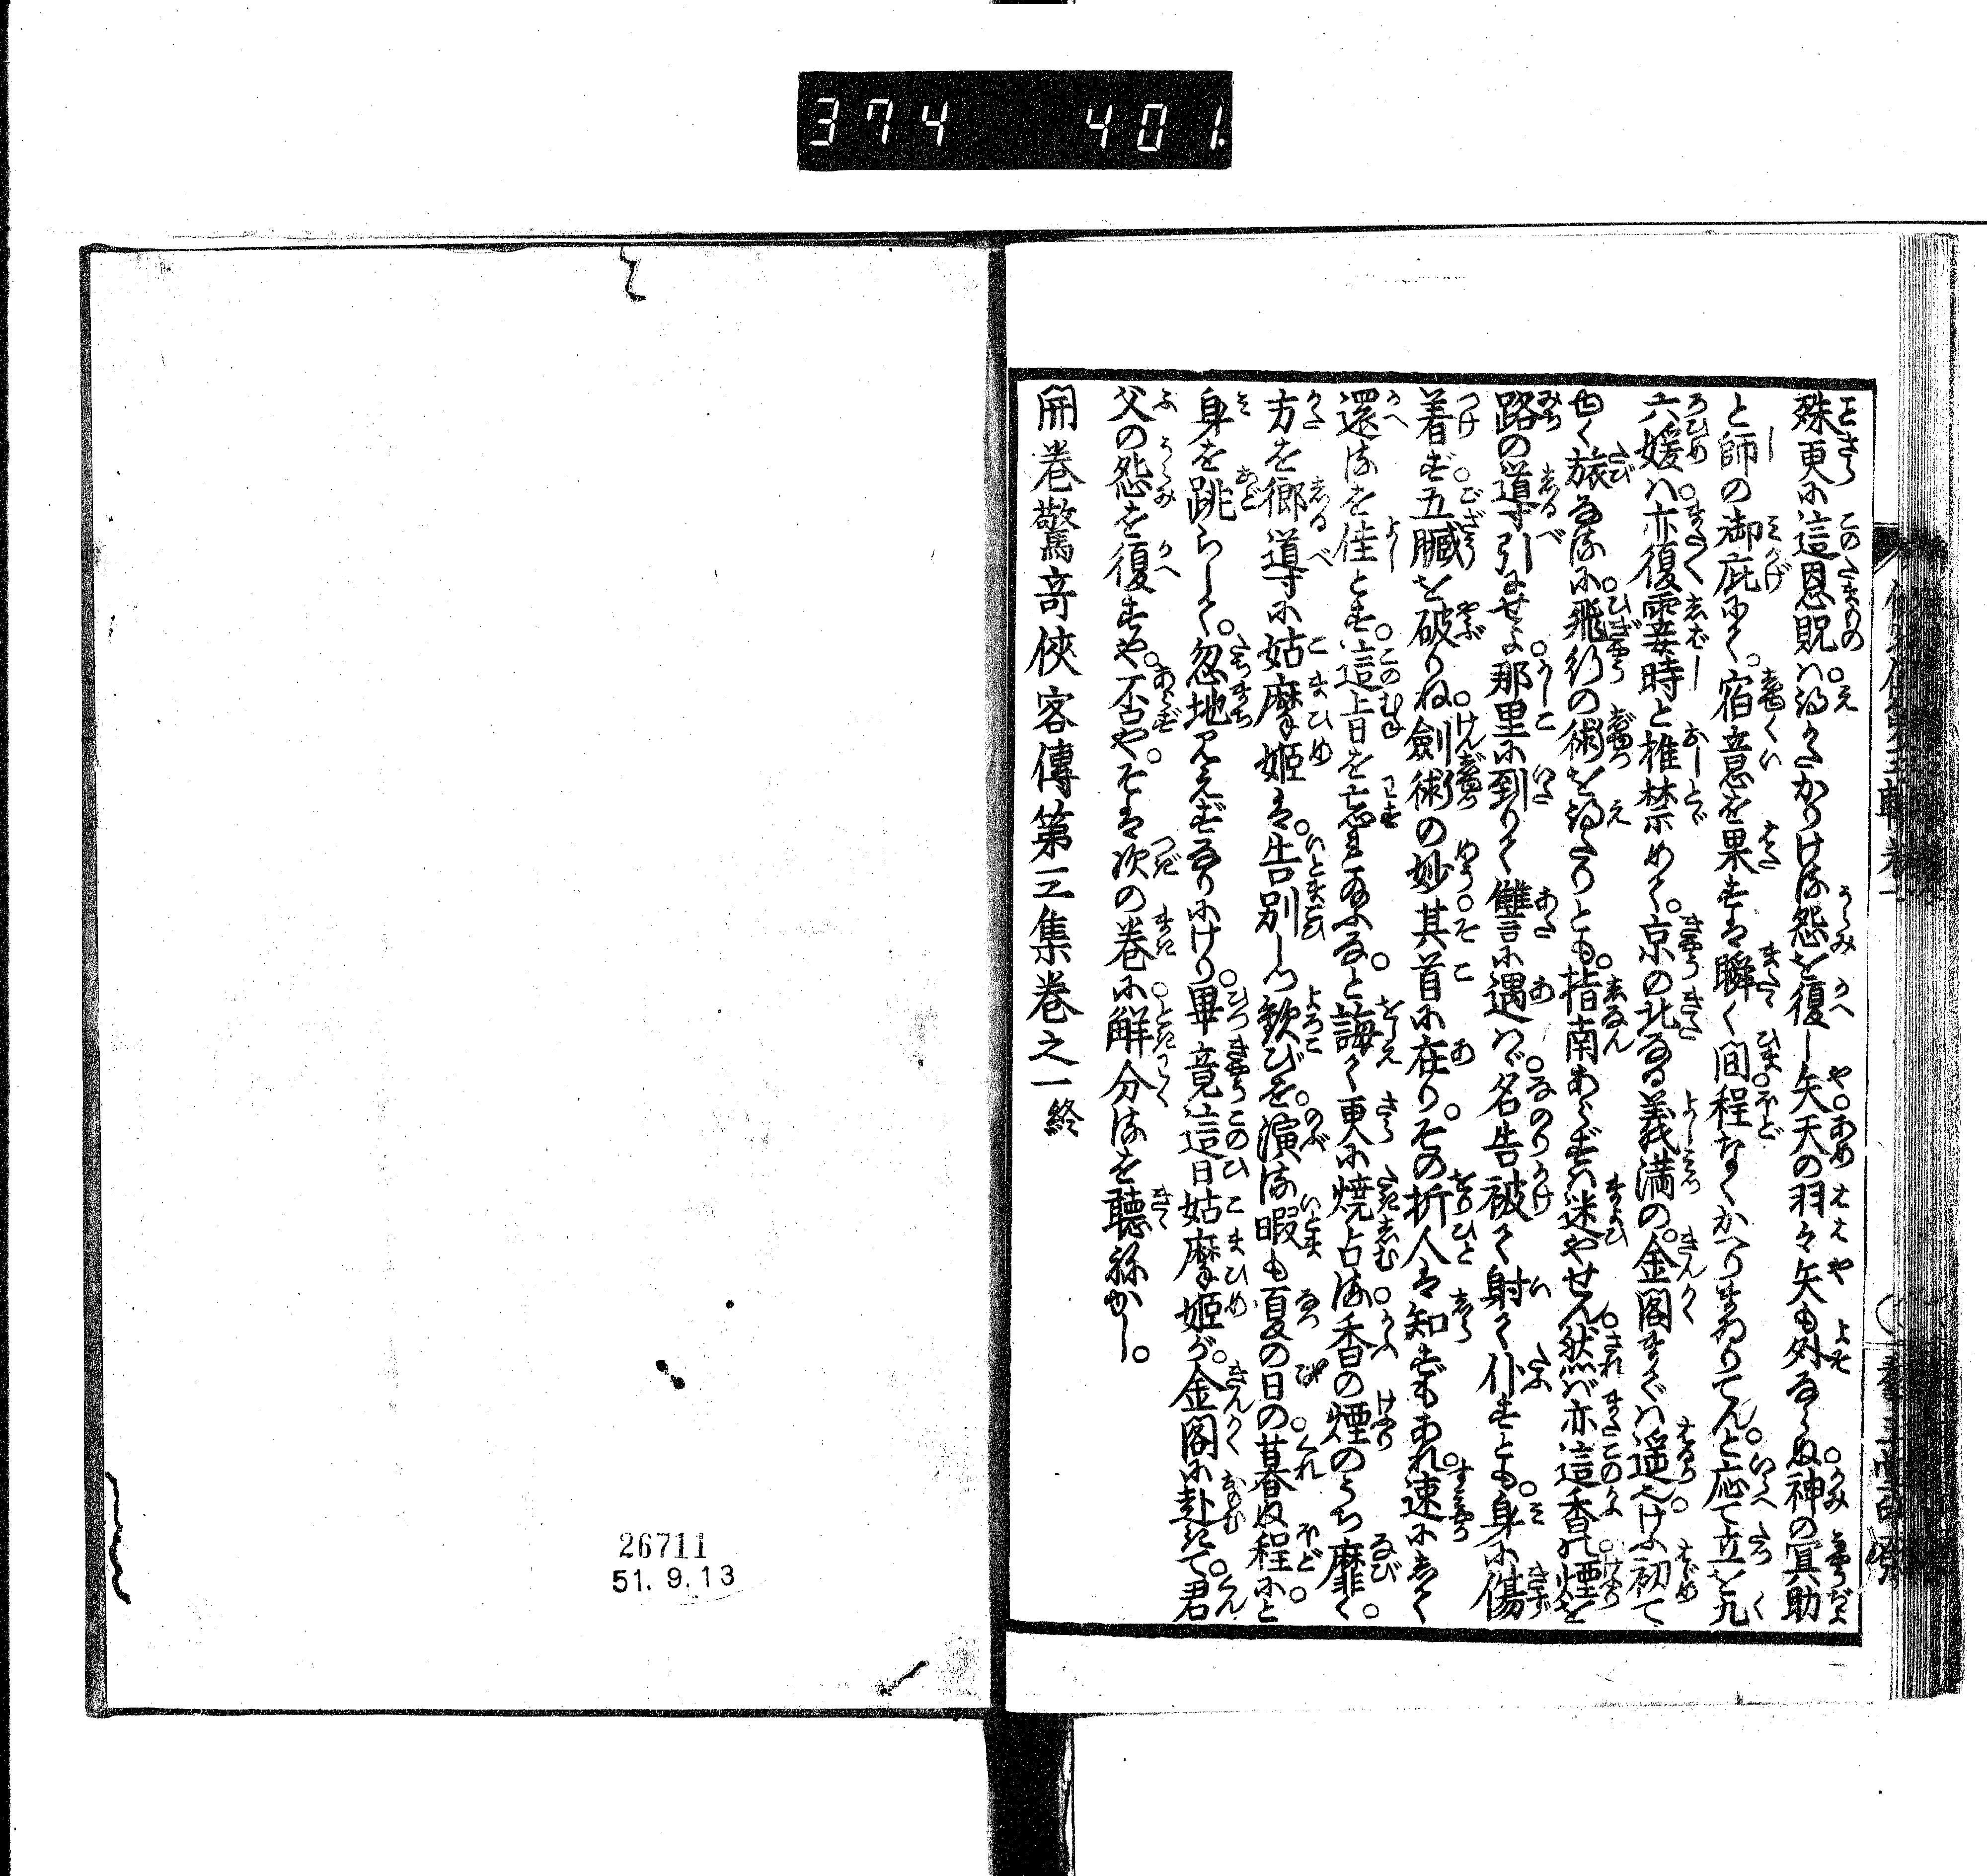 殊更に這恩貺は得がたかりける怨を復し矢天の羽々矢も外ならぬ神の冥助
と師の御庇にて。宿意を果すは瞬く間程なくかへりまゐりてん。と応て立を九
六媛は亦復霎時と推禁めて。京の北なる義満の。金閣まではいと遥けし初て
ゆく旅なるに飛行の術を得たりとも。指南あらずは迷やせん然ば亦這香の煙を
路の道引にせよ。那里に到りて讐に遇はゞ。名告被て射て仆すとも。身に傷
着ず。五臓を破りね。劍術の妙其首に在り。その折人は知ずもあれ。速にしく
還るを佳とす。這旨を忘れ給ふな。と誨て更に焼占る香の煙のうち靡く。
方を郷導に姑摩姫は。告別しつ歓びを。演る暇も夏の日の。暮ぬ程にと
身を跳らして。忽地見えずなりにけり。畢竟這日姑摩姫が。金閣に赴きて。君
父の怨を復すや。不や。そは次の巻に解分るを聴ねかし。
開巻驚竒俠客傳第三集巻之一終
26711
51.9.13
374 401.